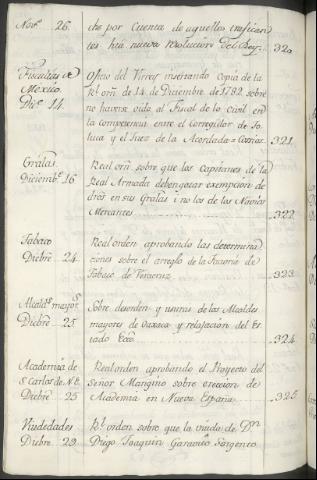 Nov.e 26. che por Cuenta de aquellos trafican
tes há nueva resolucion del Rey. 320
Fiscalias de Mexico. Dic.e 14. Oficio del Virrey insertando Copia de la
R.l orn de 14 de Diciembre de 1782 sobre
no haverse oido al Fiscal de lo Civil en
la competencia entre el Corregidor de To
luca y el Juez de la Acordada = Copias. 321
Gralas. Diciemb.e 16 Real orn sobre que los Capitanes de la
Real Armada deben gozar exempcion de
dros en sus Gralas i no los de los Navios
Mercantes 322
Tabaco Dicbre 24 Real orden aprobando las determina
ciones sobre el arreglo de la Factoria de
Tabaco de Veracruz 323
Alcald.s mayor.s Dicbre 25 Sobre desorden y usuras de los Alcaldes
mayores de Oaxaca y relajacion del Es
tado Ecco. 324
Academia de S. Carlos de N.E. Dicbre 25 Real orden aprobando el Proyecto del
Señor Mangino sobre ereccion de
Academia en Nueva España 325
Viudedades Dicbre 29 R.l orden sobre que la viuda de Dn
Diego Joaquin Garavito Sargento